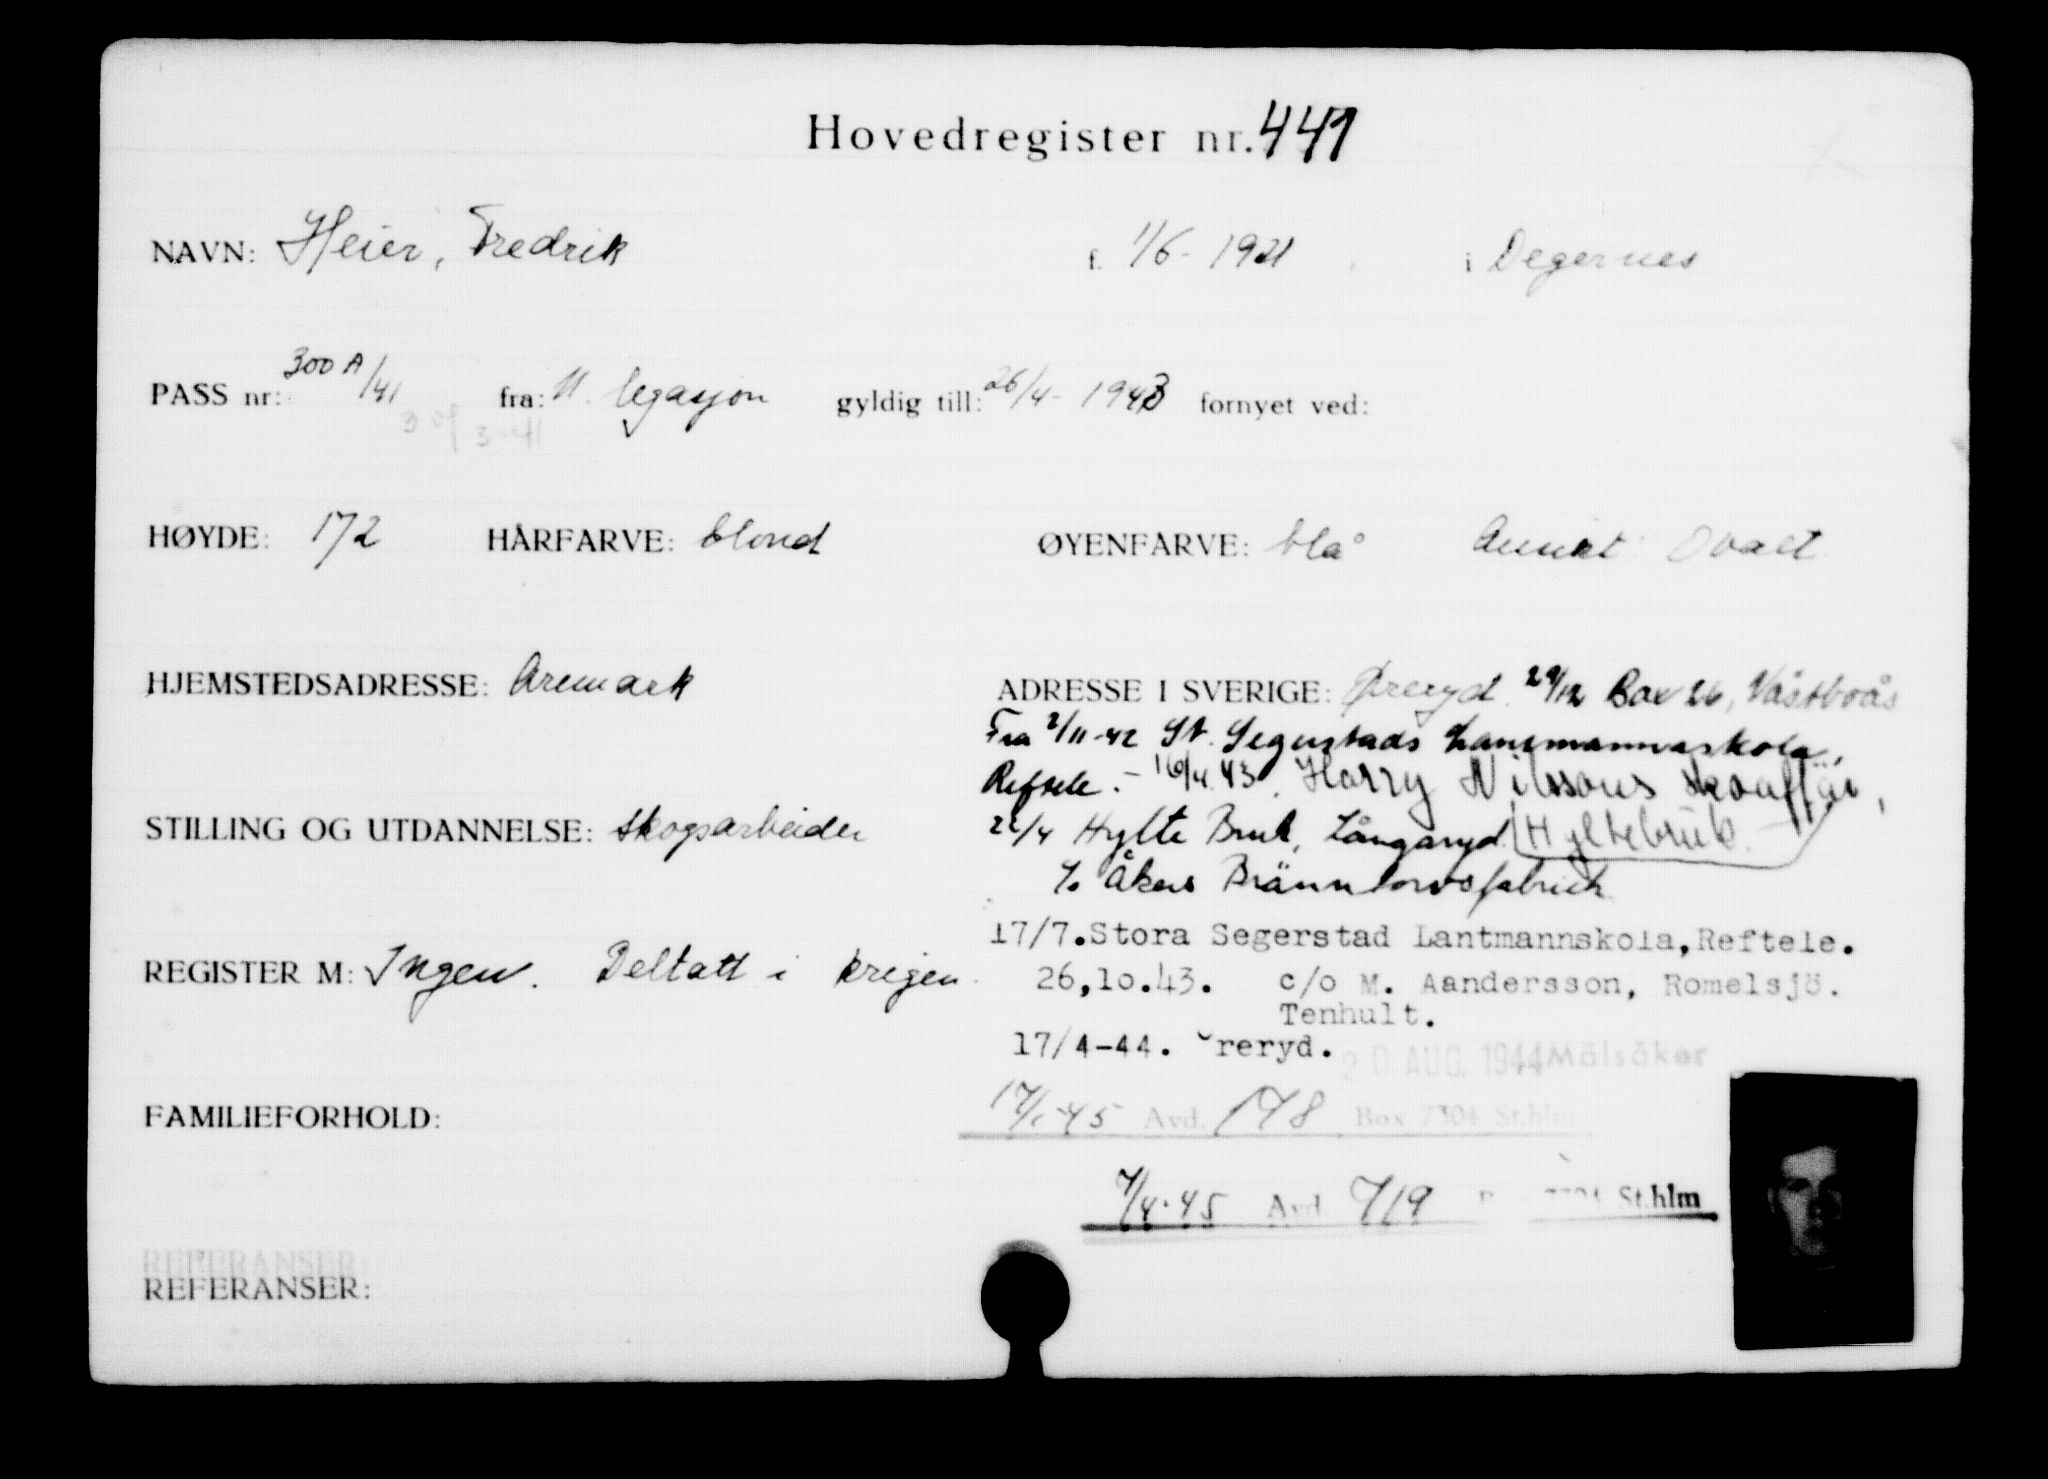 Hovedregister nr. 441
NAVN: Heier, Fredrik f. 1/6 - 1921 i Degernes
PASS nr: 300 A/41 fra: legasjon gyldig till: 26/4 - 1943 fornyet ved:
HØYDE: 172 HÅRFARVE: blond ØYENFARVE: blå Ansikt: Ovalt
HJEMSTEDSADRESSE: Aremark
ADRESSE I SVERIGE: Øreryd. 29/12 Box 26, Västboås
Fra 2/11-42 St. Segerstads Lantmannaskola,
Reftele. - 16/4 43. Harry Nilssons
22/4 Hylte Bruk, Långaryd. Hyltebruk.
c/o Åkers Bränntorvsfabrick
STILLING OG UTDANNELSE: skogsarbeider
17/7. Stora Segerstad Lantmannskola, Reftele.
REGISTER M: Ingen. Deltatt i krigen.
26,10.43. c/o M. Aandersson, Romelsjö.
Tenhult.
17/4-44. reryd.
20 AUG. 1944 Mälsåker
FAMILIEFORHOLD:
17/1-45 Avd. 178 Box 7304 St.hlm
7/4-45 Avd 719 St.hlm
REFERANSER:
REFERANSER: